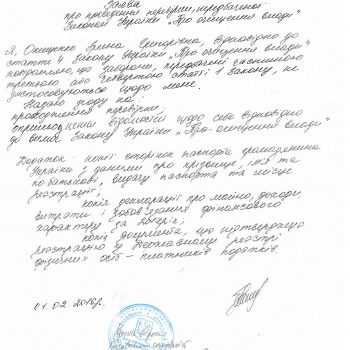 Заява
про проведення перевірки, передбаченої
Законом України „Про очищення влади”
Я, Онищенко Ірина Григорівна, відповідно до
статті 4 Закону України „Про очищення влади”
повідомляю, що заборони, передбачені частиною
третьою або четвертою статті 1 Закону, не
застосовуються щодо мене.
Надаю згоду на:
проходження перевірки;
оприлюднення відомостей щодо себе відповідно
до вимог Закону України „Про очищення влади”
Додаток: копії сторінок паспорта громадянина
України з даними про прізвище, ім'я та
по батькові, видачу паспорта та місце
реєстрації;
копія декларації про майно, доходи,
витрати і зобов'язання фінансового
характеру за рік;
копія документа, що підтверджує
реєстрацію у Державному реєстрі
фізичних осіб – платників податків.
01.02.2016р.